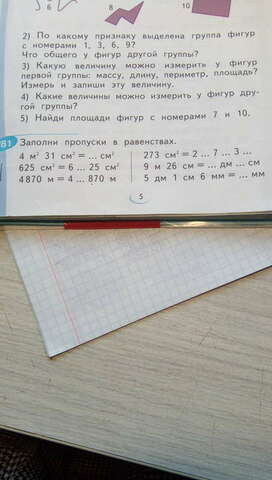 6 8 10
2) По какому признаку выделена группа фигур
с номерами 1, 3, 6, 9?
Что общего у фигур другой группы?
3) Какую величину можно измерить у фигур
первой группы: массу, длину, периметр, площадь?
Измерь и запиши эту величину.
4) Какие величины можно измерить у фигур дру-
гой группы?
5) Найди площади фигур с номерами 7 и 10.
81 Заполни пропуски в равенствах.
4 м² 31 см² = ... см² 273 см² = 2 ... 7 ... 3 ...
625 см² = 6 ... 25 см² 9 м 26 см = ... дм ... см
4870 м = 4 ... 870 м 5 дм 1 см 6 мм = ... мм
5